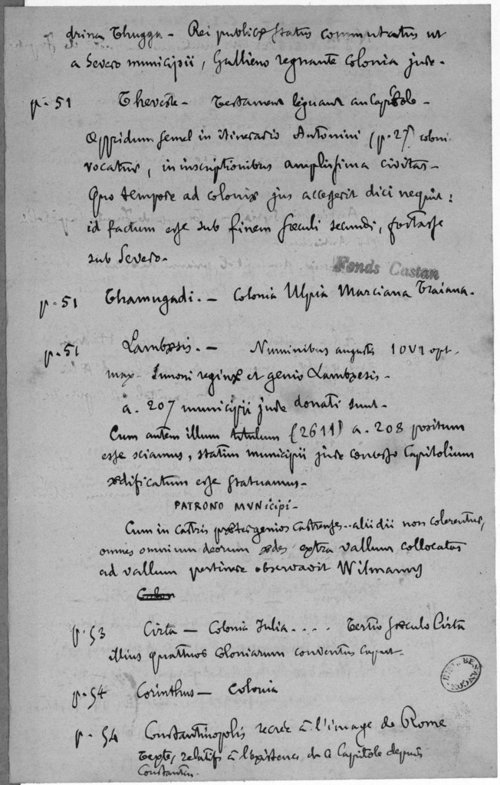 drina Thugga - Rei publicæ status commutatus ut
a Severo municipii, Gallieno regnante colonia jure -
p. 51 Theveste - Testament léguant au Capitole -
Oppidum semel in itinerario Antonini (p. 27) colonia
vocatur, in inscriptionibus amplissima civitas -
Quo tempore ad coloniæ jus accesserit dici nequit ;
id factum esse sub finem sæculi secundi, fortasse
sub Severo -
Fonds Castan
p. 51 Thamugadi. - Colonia Ulpia Marciana Traiana -
p. 51 Lambæsis. - Numinibus augustis IOVI opt.
max. Junoni reginæ et genio Lambæsis -
a. 207 municipii jure donati sunt -
Cum autem illum titulum (2611) a. 208 positum
esse sciamus, statim municipii jure concesso Capitolium
ædificatum esse statuamus -
PATRONO MVNicipi -
Cum in castris præter genios castrenses alii dii non colerentur,
omnes omnium deorum ædes extra vallum collocatas
ad vallum pertinere observavit Wilmanns
p. 53 Cirta - Colonia Julia . . . . Tertio sæculo Cirta
illius quattuor coloniarum conventus caput -
p. 54 Corinthus - Colonia
p. 54 Constantinopolis recréé à l'image de Rome
Textes relatifs à l'existence du Capitole depuis
Constantin.